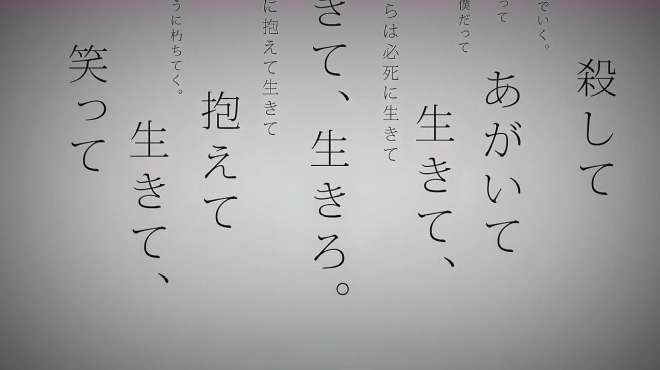 でいく。
殺して
って
あがいて
僕だって
生きて、
らは必死に生きて
きて、生きろ。
に抱えて生きて
抱えて
うに朽ちてく。
生きて、
笑って